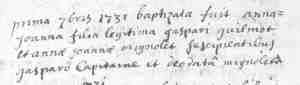 prima 7bris 1731 baptizata fuit anna-
joanna filia legitima gaspari guilmot
et annæ joannæ mignolet suscipientibus
gasparo Capitaine et deodata mignolet